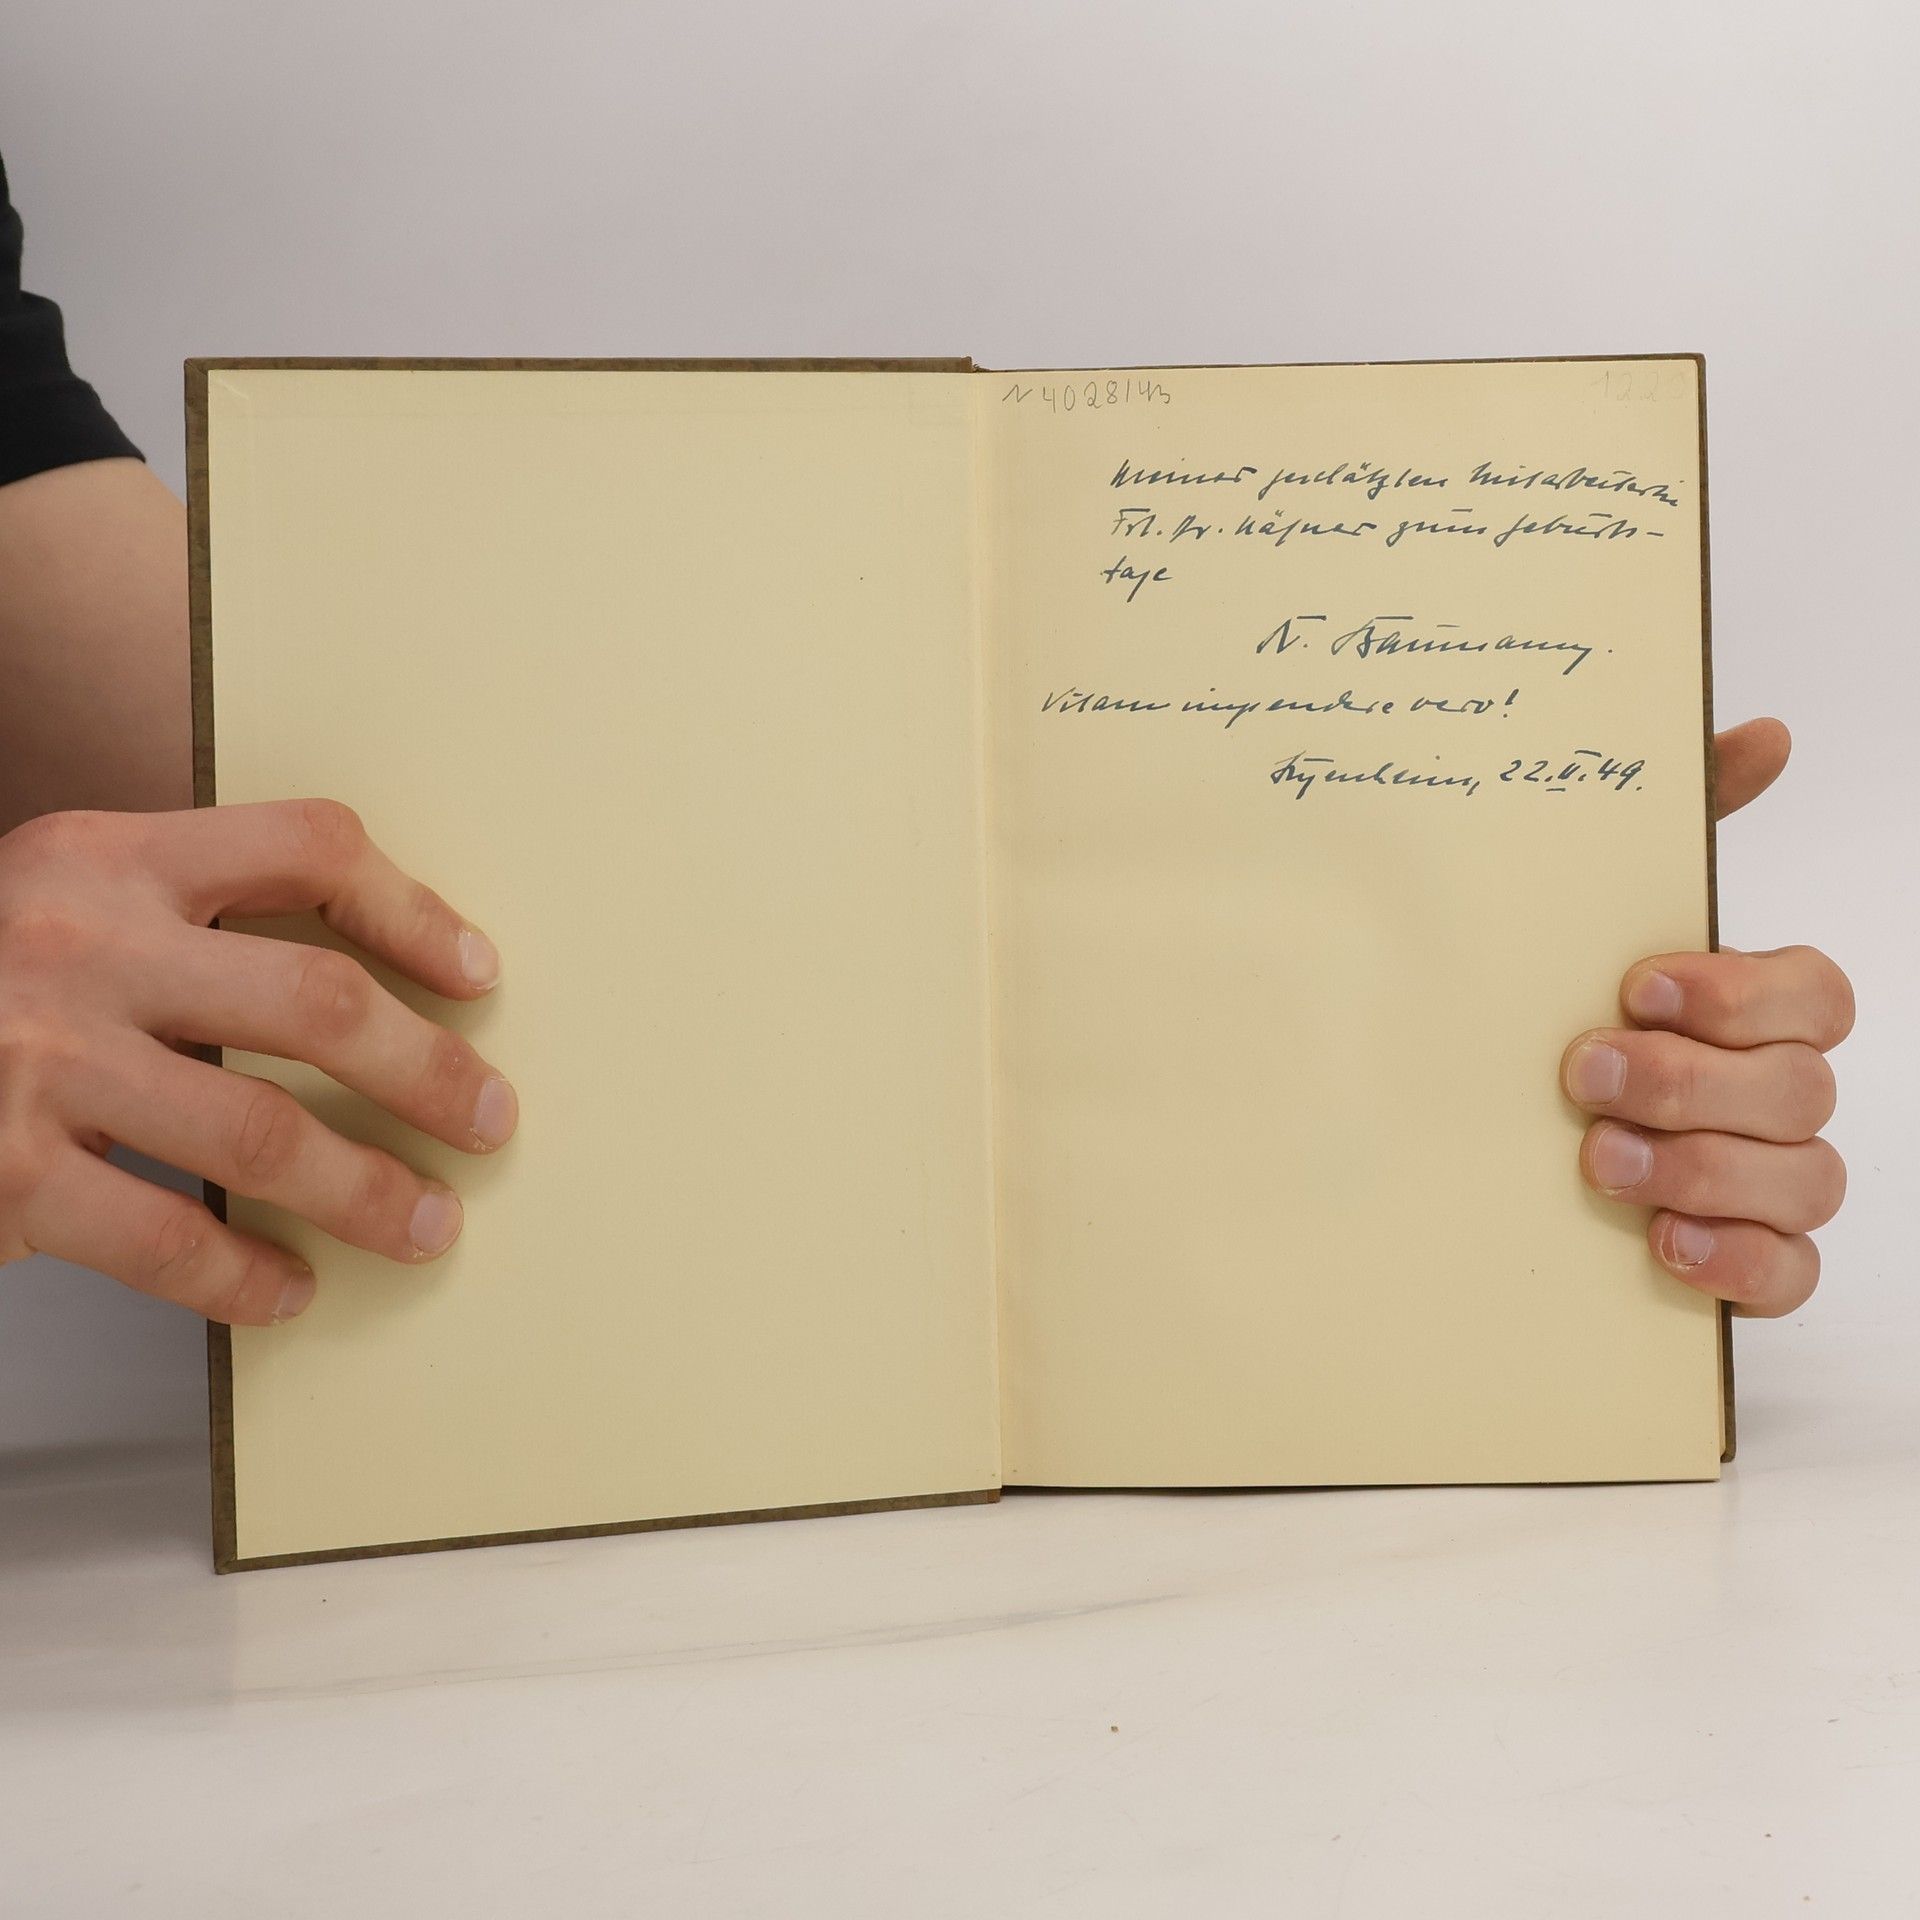 N 4028/43
1220
Meiner geschätzten Mitarbeiterin
Frl. Dr. Käsner zum Geburts-
tage
N. Baumann.
Vitam impendere vero!
22.II.49.